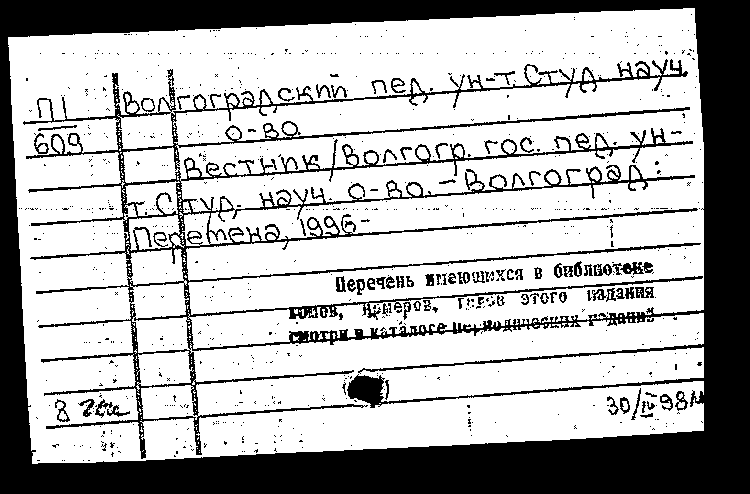 П1 Волгоградский пед. ун-т. Студ. науч.
609 о-во.
Вестник / Волгогр. гос. пед. ун-
т. Студ. науч. о-во. – Волгоград:
Перемена, 1996-
Перечень имеющихся в библиотеке
томов, номеров, годов этого издания
смотри в каталоге периодических изданий
8
30/IV 98